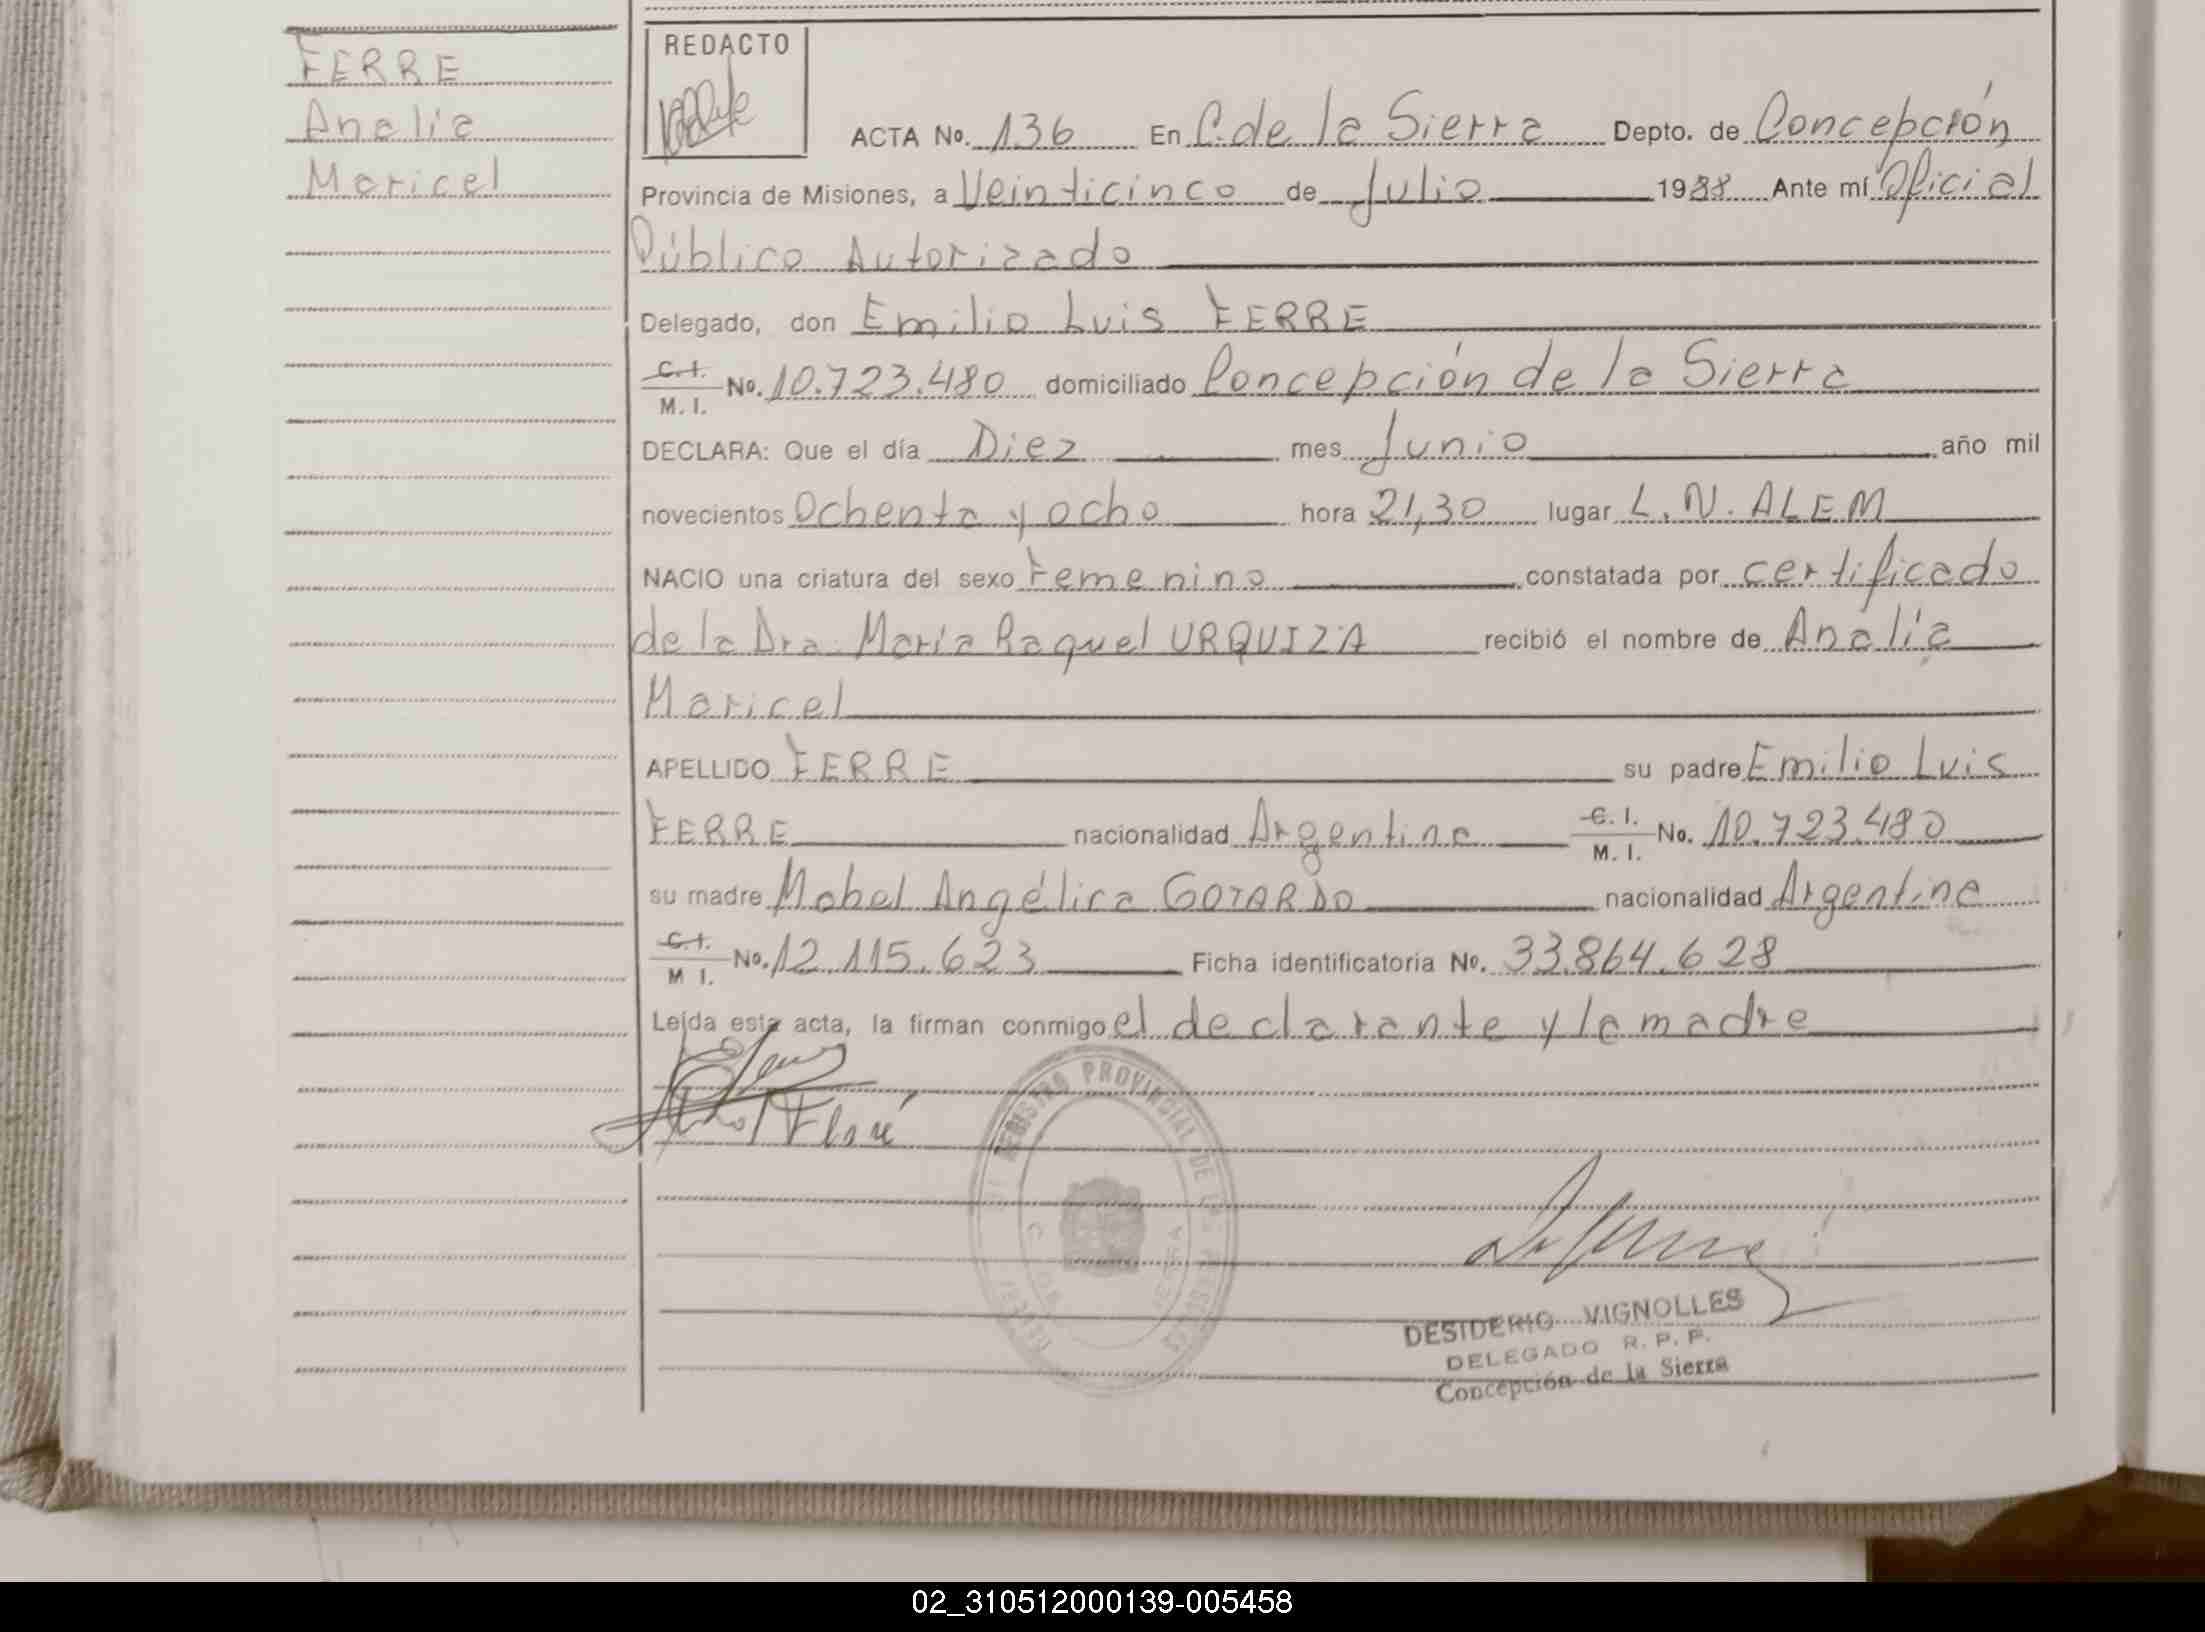 FERRE
Analía
Maricel
REDACTO
ACTA No. 136 En C. de la Sierra Depto. de Concepción
Provincia de Misiones, a Veinticinco de Julio 1988 Ante mí Oficial
Público Autorizado
Delegado, don Emilio Luis FERRE
C. I.
M. I. No. 10.723.480 domiciliado Concepción de la Sierra
DECLARA: Que el día Diez mes Junio año mil
novecientos Ochenta y ocho hora 21,30 lugar L. N. ALEM
NACIO una criatura del sexo Femenino constatada por certificado
de la Dra. María Raquel URQUIZA recibió el nombre de Analía
Maricel
APELLIDO FERRE su padre Emilio Luis
FERRE nacionalidad Argentina C. I.
M. I. No. 10.723.480
su madre Mabel Angélica GOTARDO nacionalidad Argentina
C. I.
M I. No. 12.115.623 Ficha identificatoria No. 33.864.628
Leída esta acta, la firman conmigo el declarante y la madre
REGISTRO PROVINCIAL DE LAS PERSONAS
DESIDERIO VIGNOLLES
DELEGADO R. P. P.
Concepción de la Sierra
02_310512000139-005458